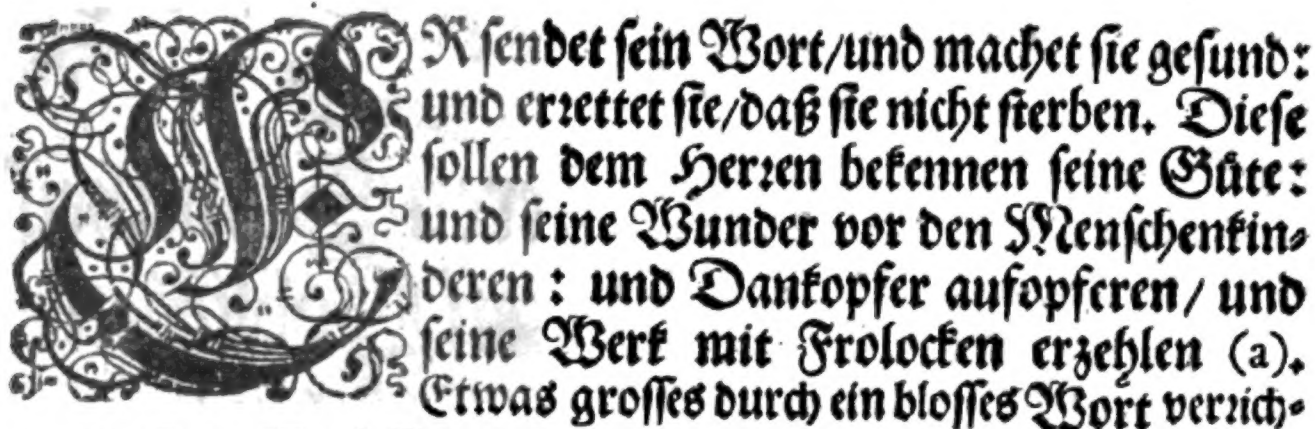 ER sendet sein Wort/und machet sie gesund:
und errettet sie/daß sie nicht sterben. Diese
sollen dem Herren bekennen seine Güte:
und seine Wunder vor den Menschenkin-
deren: und Dankopfer aufopferen/ und
seine Werk mit Frolocken erzehlen (a).
Etwas grosses durch ein blosses Wort verrich-